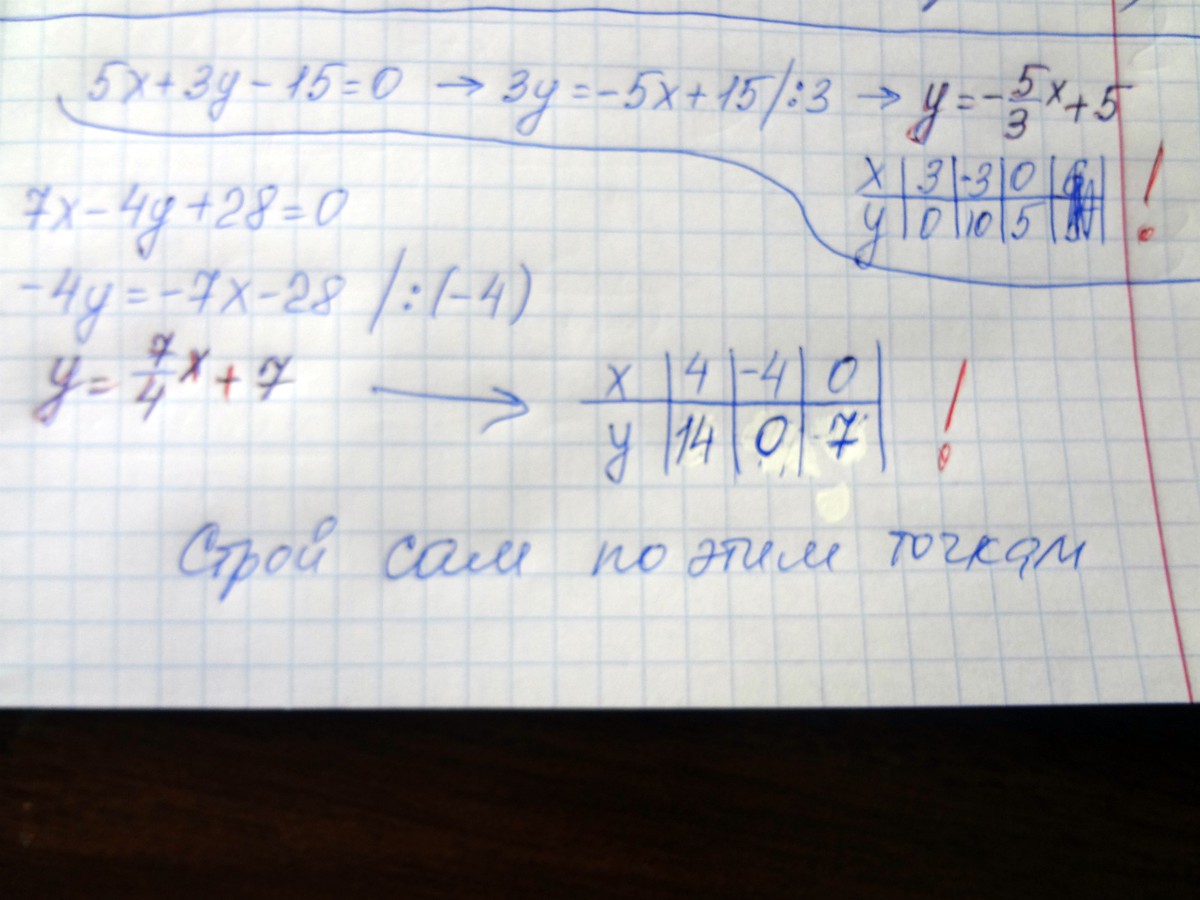 5x+3y-15=0 → 3y=-5x+15/:3 → y=-5/3x+5
x | 3 | -3 | 0 |
y | 0 | 10 | 5 | !
7x-4y+28=0
-4y=-7x-28 /:(-4)
y=7/4x+7 →
x | 4 | -4 | 0
y | 14 | 0 | 7 !
Строй сам по этим точкам